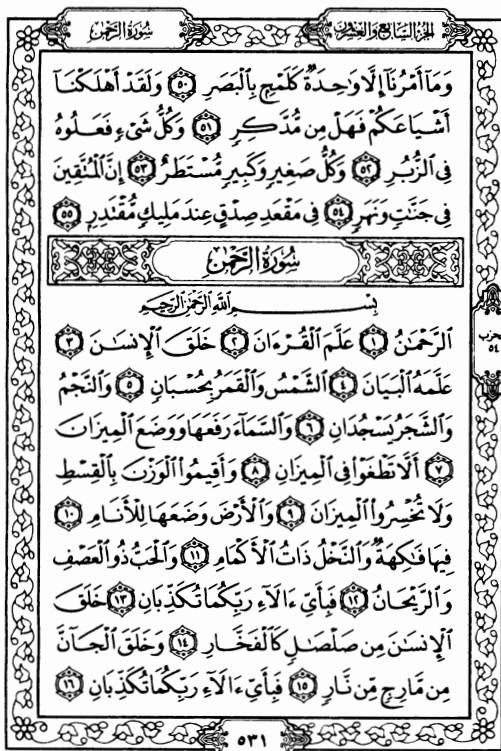 الجزء السابع والعشرون
سورة الرحمن
وَمَا أَمْرُنَا إِلَّا وَٰحِدَةٌ كَلَمْحٍ بِالْبَصَرِ ٥٠ وَلَقَدْ أَهْلَكْنَا
أَشْيَاعَكُمْ فَهَلْ مِن مُّدَّكِرٍ ٥١ وَكُلُّ شَيْءٍ فَعَلُوهُ
فِي الزُّبُرِ ٥٢ وَكُلُّ صَغِيرٍ وَكَبِيرٍ مُّسْتَطَرٌ ٥٣ إِنَّ الْمُتَّقِينَ
فِي جَنَّٰتٍ وَنَهَرٍ ٥٤ فِي مَقْعَدِ صِدْقٍ عِندَ مَلِيكٍ مُّقْتَدِرٍ ٥٥
سُورَةُ الرَّحْمَٰن
بِسْمِ اللَّهِ الرَّحْمَٰنِ الرَّحِيمِ
الرَّحْمَٰنُ ١ عَلَّمَ الْقُرْءَانَ ٢ خَلَقَ الْإِنسَٰنَ ٣
عَلَّمَهُ الْبَيَانَ ٤ الشَّمْسُ وَالْقَمَرُ بِحُسْبَانٍ ٥ وَالنَّجْمُ
وَالشَّجَرُ يَسْجُدَانِ ٦ وَالسَّمَاءَ رَفَعَهَا وَوَضَعَ الْمِيزَانَ
٧ أَلَّا تَطْغَوْا فِي الْمِيزَانِ ٨ وَأَقِيمُوا الْوَزْنَ بِالْقِسْطِ
وَلَا تُخْسِرُوا الْمِيزَانَ ٩ وَالْأَرْضَ وَضَعَهَا لِلْأَنَامِ ١٠
فِيهَا فَٰكِهَةٌ وَالنَّخْلُ ذَاتُ الْأَكْمَامِ ١١ وَالْحَبُّ ذُو الْعَصْفِ
وَالرَّيْحَانُ ١٢ فَبِأَيِّ ءَالَاءِ رَبِّكُمَا تُكَذِّبَانِ ١٣ خَلَقَ
الْإِنسَٰنَ مِن صَلْصَٰلٍ كَالْفَخَّارِ ١٤ وَخَلَقَ الْجَانَّ
مِن مَّارِجٍ مِّن نَّارٍ ١٥ فَبِأَيِّ ءَالَاءِ رَبِّكُمَا تُكَذِّبَانِ ١٦
حزب
٥٤
٥٣١